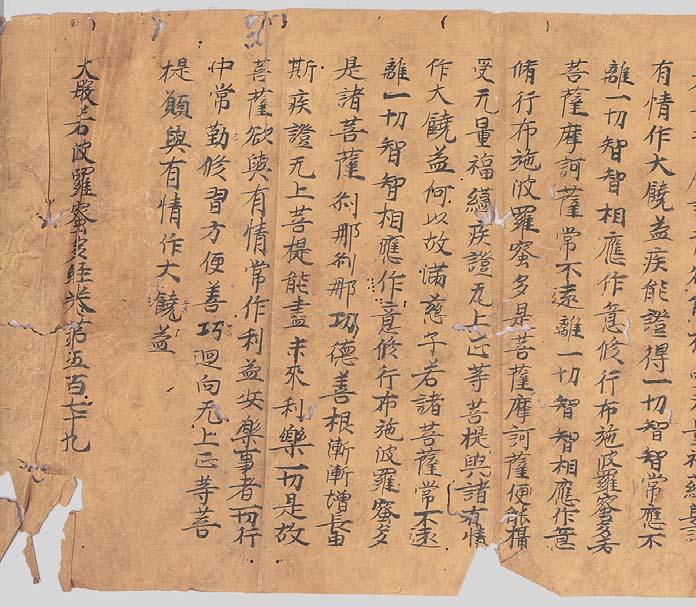 有情作大饒益疾能證得一切智智常應不
離一切智智相應作意修行布施波羅蜜多若
菩薩摩訶薩常不遠離一切智智相應作意
脩行布施波羅蜜多是菩薩摩訶薩便能攝
受无量福緼疾證无上正等菩提與諸有情
作大饒益何以故滿慈子若諸菩薩常不遠
離一切智智相應作意修行布施波羅蜜多
是諸菩薩剎那剎那功德善根漸漸增長由
斯疾證无上菩提能盡未來利樂一切是故
菩薩欲與有情常作利益安樂事者一切行
中常勤修習方便善巧迴向无上正等菩
提願與有情作大饒益
大般若波羅蜜多經卷第五百七十九